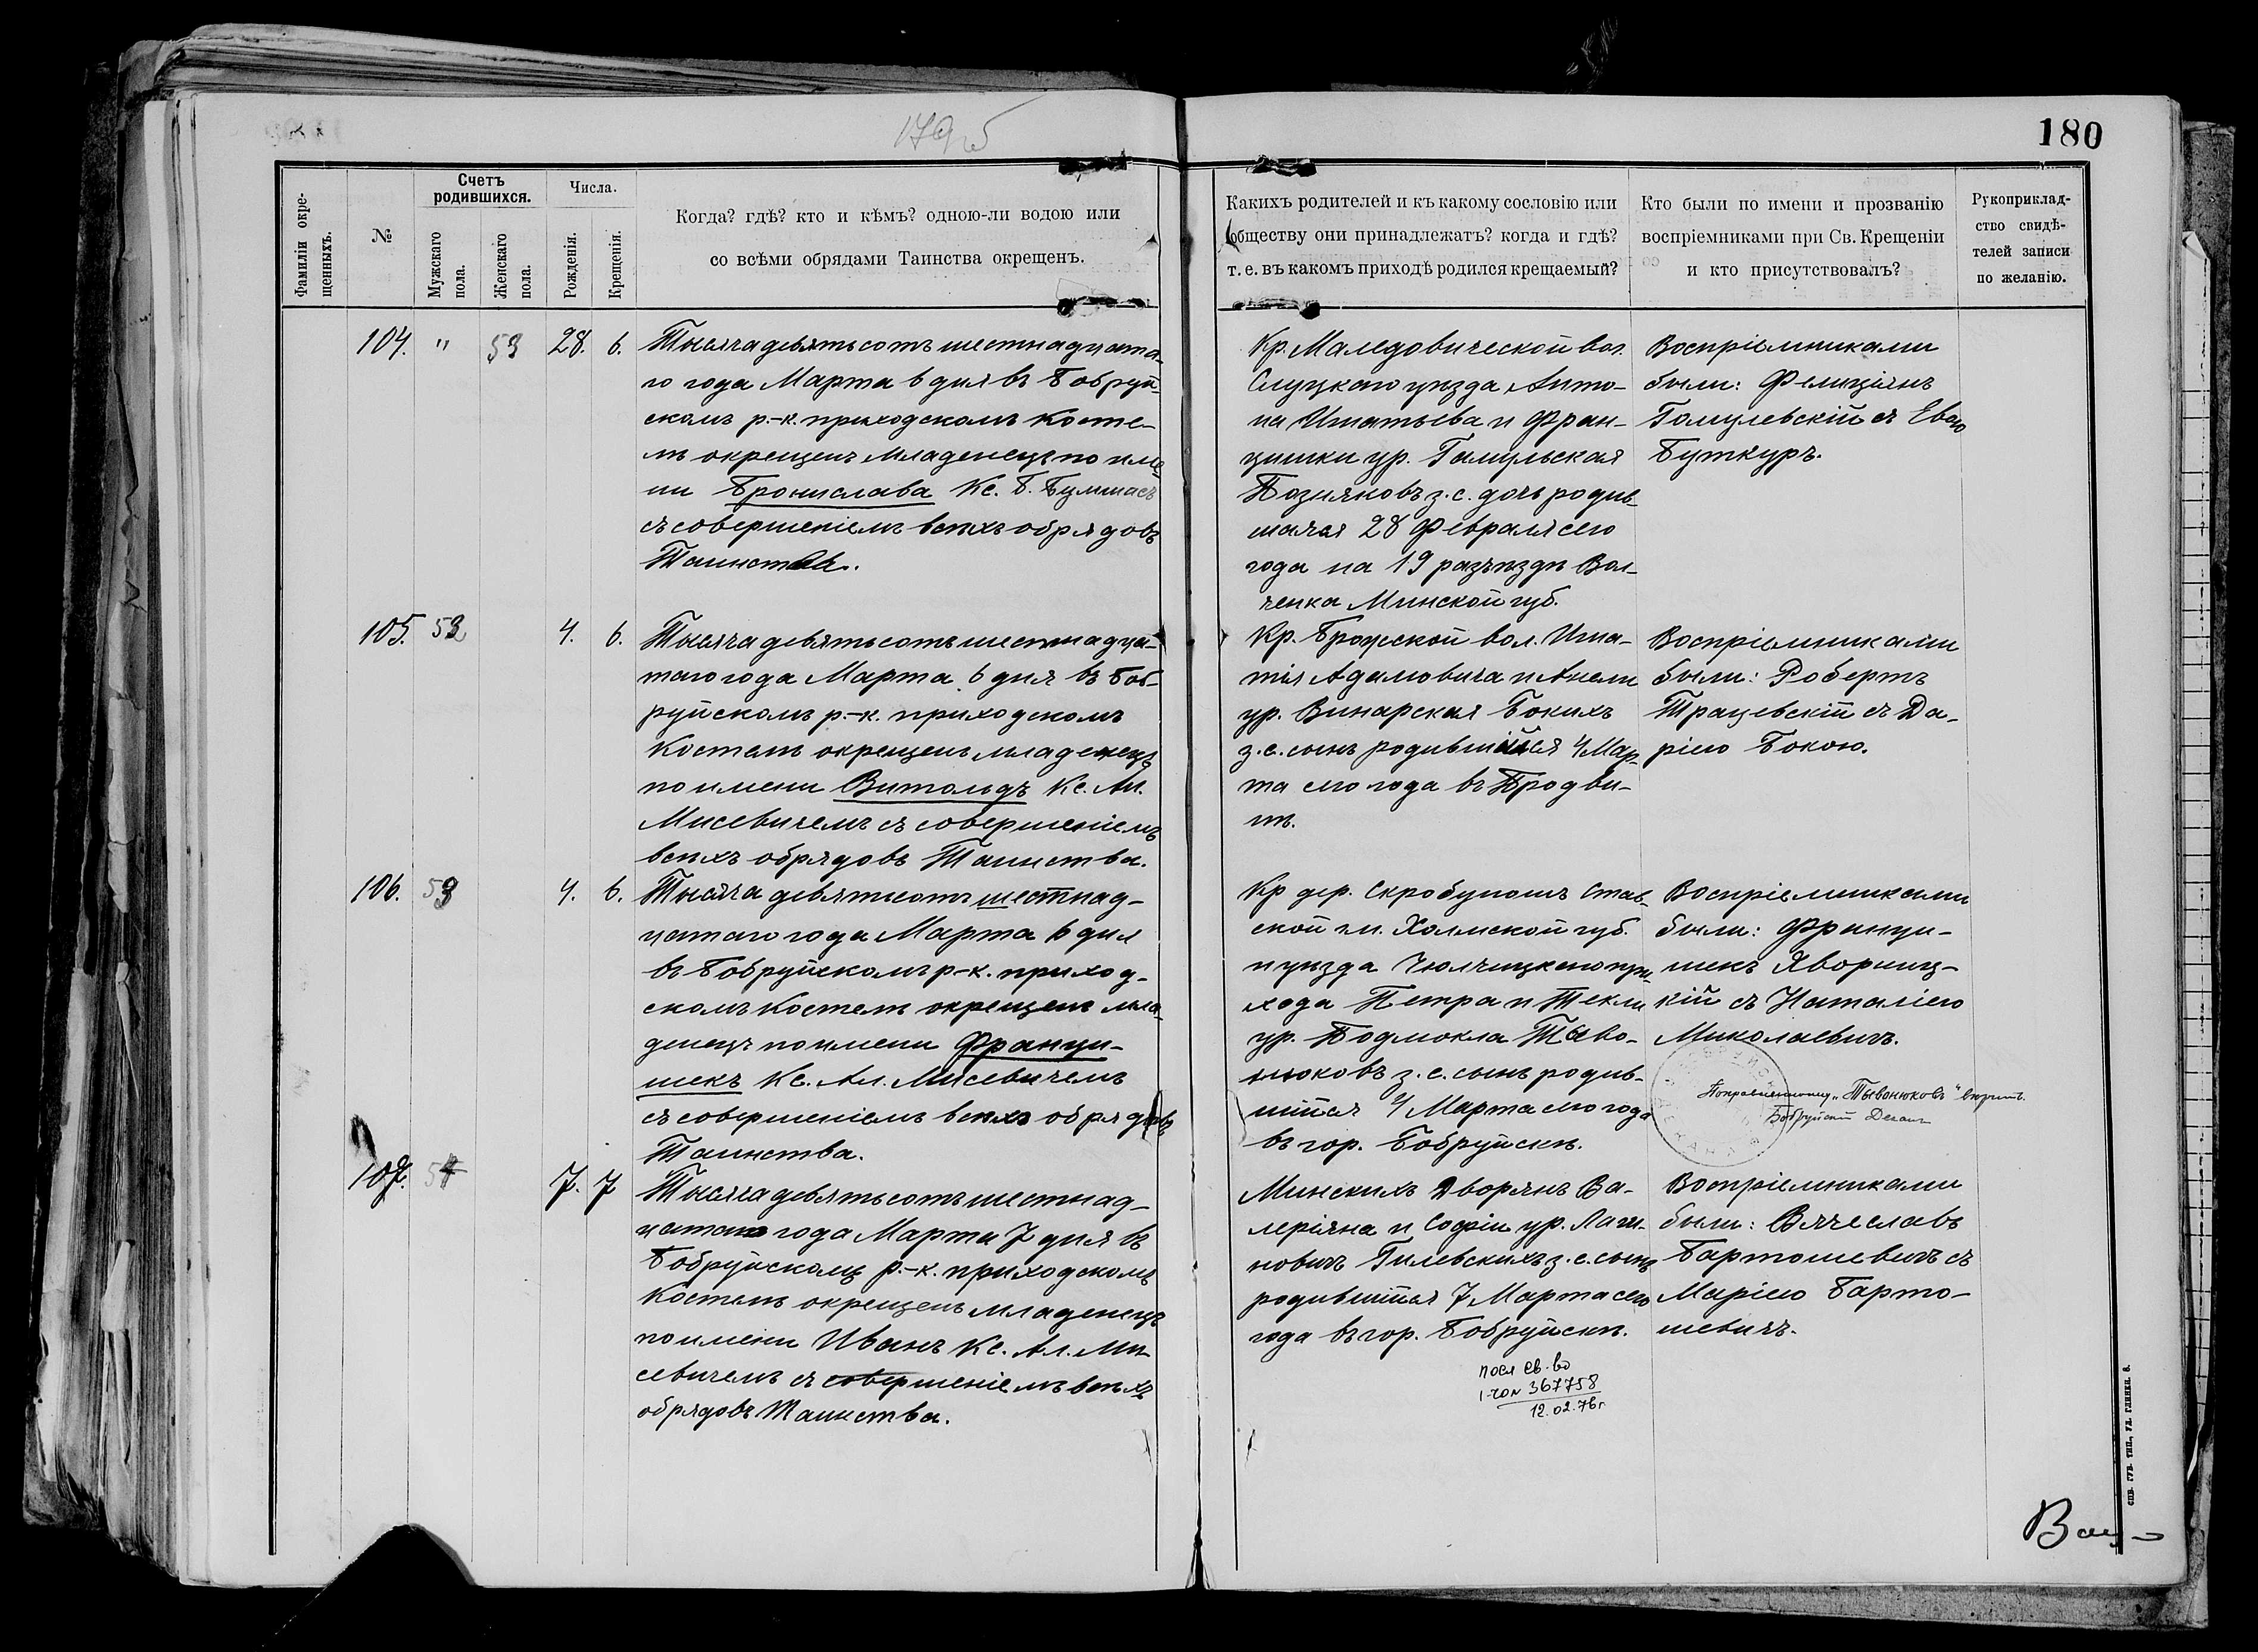 179об
180
Фамиліи окре-
щенныхъ.
№
Счетъ
родившихся.
Мужскаго
пола.
Женскаго
пола.
Числа.
Рожденія.
Крещенія.
Когда? гдѣ? кто и кѣмъ? одною-ли водою или
со всѣми обрядами Таинства окрещенъ.
Какихъ родителей и къ какому сословію или
обществу они принадлежатъ? когда и гдѣ?
т. е. въ какомъ приходѣ родился крещаемый?
Кто были по имени и прозванію
воспріемниками при Св. Крещеніи
и кто присутствовалъ?
Рукоприклад-
ство свидѣ-
телей записи
по желанію.
104. " 53 28. 6.
Тысяча девятьсотъ шестнадцата-
го года Марта 6 дня въ Бобруй-
скомъ р.-к. приходскомъ косте-
лѣ окрещенъ младенецъ по име-
ни Бронислава Кс.
съ совершеніемъ всѣхъ обрядовъ
Таинства.
Кр. Маледовической вол.
Слуцкаго уѣзда Анто-
на Игнатьева и Фран-
цишки ур. Гамульская
Позняковъ з. с. дочь родив-
шаяся 28 Февраля сего
года на 19 разъѣздѣ Вол-
ченка Минской губ.
Воспріемниками
были: Фелиціянъ
Гомулевскій съ Евою
Буткуръ.
105. 52 4. 6.
Тысяча девятьсотъ шестнадца-
таго года Марта 6 дня въ Боб-
руйскомъ р.-к. приходскомъ
костелѣ окрещенъ младенецъ
по имени Витольдъ Кс. Ал.
Мисевичемъ съ совершеніемъ
всѣхъ обрядовъ Таинства.
Кр. Брожской вол. Игна-
тія Адамовича и Анели
ур. Винарская Бокихъ
з. с. сынъ родившійся 4 Мар-
та сего года въ Бродви-
лѣ.
Воспріемниками
были: Робертъ
Трацевскій съ Да-
ріею Бокою.
106. 53 4. 6.
Тысяча девятьсотъ шестнад-
цатаго года Марта 6 дня
въ Бобруйскомъ р-к. приход-
скомъ костелѣ окрещенъ мла-
денецъ по имени Франци-
шекъ Кс. Ал. Мисевичемъ
съ совершеніемъ всѣхъ обрядовъ
Таинства.
Кр дер. Скробупошъ Став-
ской гм. Холмской губ.
и уѣзда Чюлчицкаго при-
хода Петра и Текли
ур. Подмокла Тыво-
нюковъ з. с. сынъ родив-
шійся 4 Марта сего года
въ гор. Бобруйскѣ.
Воспріемниками
были: Франци-
шекъ Яворниц-
кій съ Наталіею
Миколаевичъ.
Поправленному „Тывонюковъ" вѣрить
Бобруйскій Деканъ
107. 54 7. 7
Тысяча девятьсотъ шестнад-
цатаго года Марта 7 дня въ
Бобруйскомъ р.-к. приходскомъ
костелѣ окрещенъ младенецъ
по имени Иванъ Кс. Ал. Ми-
севичемъ съ совершеніемъ всѣхъ
обрядовъ Таинства.
Минскихъ Дворянъ Ва-
леріяна и Софіи ур. Лаги-
новичъ Гилевскихъ з. с. сынъ
родившійся 7 Марта сего
года въ гор. Бобруйскѣ.
Воспріемниками
были: Вячеславъ
Бартошевичъ съ
Маріею Барто-
шевичъ.
посл св-во
367758
12.02.76г
СПВ. ГУБ. ТИП., УЛ. ГЛИНКИ, 8.